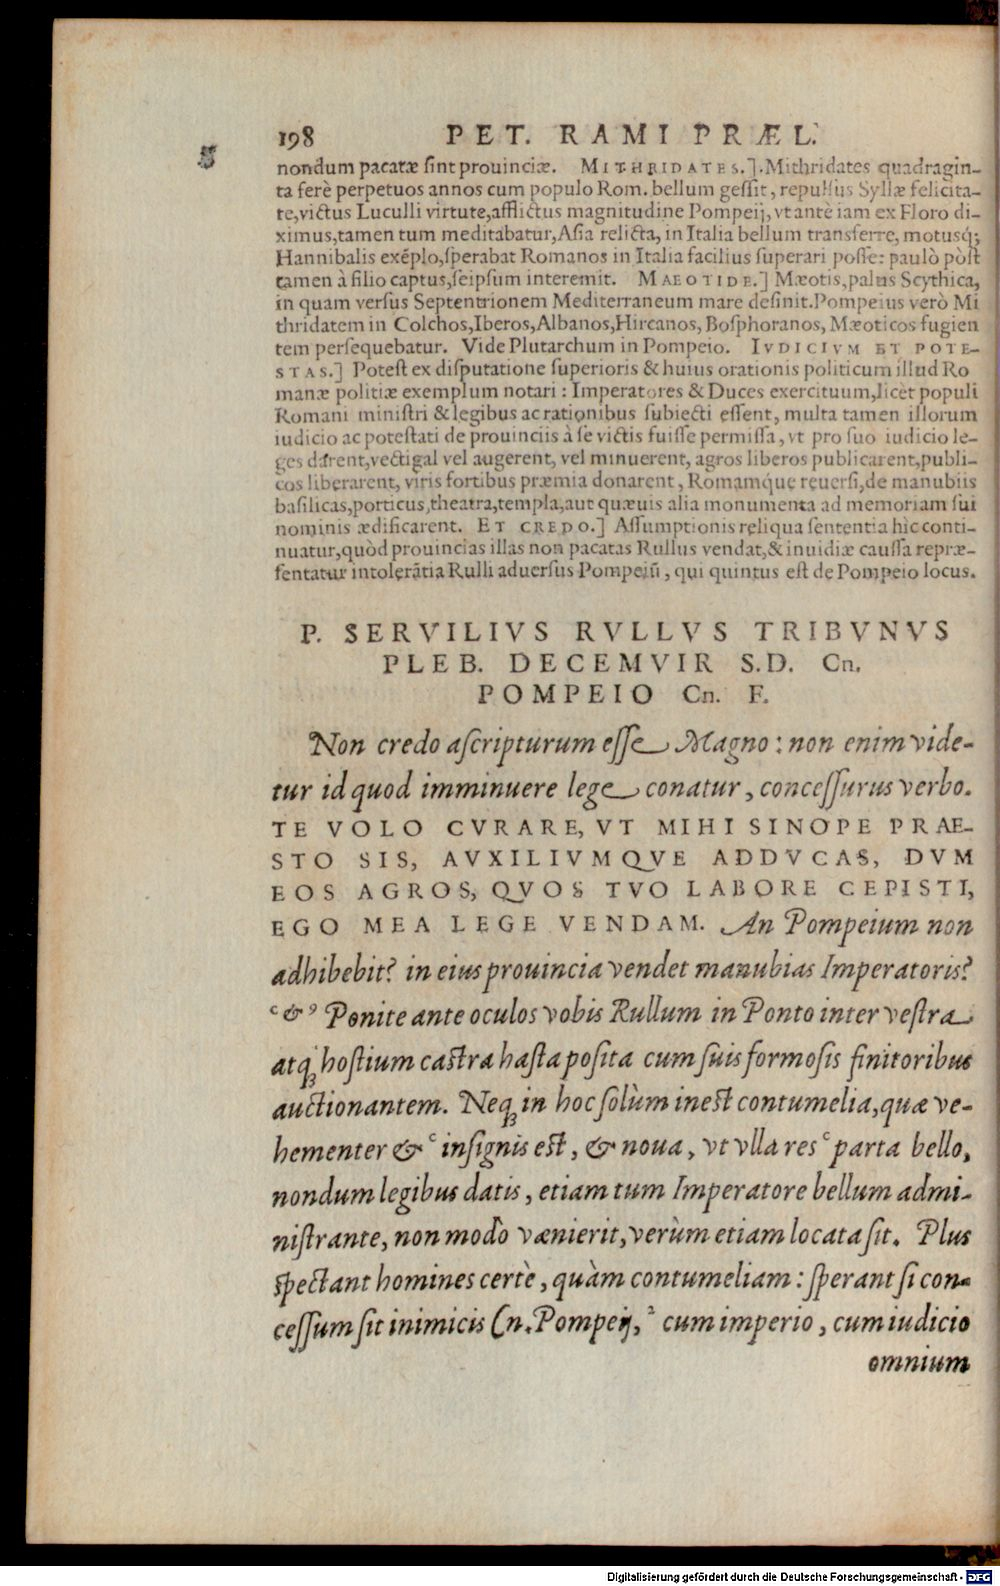 198 PET. RAMI PRÆL.
nondum pacatæ ſint prouinciæ. MITHRIDATES.] Mithridates quadragin-
ta ferè perpetuos annos cum populo Rom. bellum geſſit, repulſus Syllæ felicita-
te, victus Luculli virtute, afflictus magnitudine Pompeij, vt antè iam ex Floro di-
ximus, tamen tum meditabatur, Aſia relicta, in Italia bellum transferre, motusq́;
Hannibalis exẽplo, ſperabat Romanos in Italia facilius ſuperari poſſe: paulò pòſt
tamen à filio captus, ſeipſum interemit. MAEOTIDE.] Mæotis, palus Scythica,
in quam verſus Septentrionem Mediterraneum mare deſinit. Pompeius verò Mi
thridatem in Colchos, Iberos, Albanos, Hircanos, Boſphoranos, Mæoticos fugien
tem perſequebatur. Vide Plutarchum in Pompeio. IVDICIVM ET POTE-
STAS.] Poteſt ex diſputatione ſuperioris & huius orationis politicum illud Ro
manæ politiæ exemplum notari: Imperatores & Duces exercituum, licèt populi
Romani miniſtri & legibus ac rationibus ſubiecti eſſent, multa tamen illorum
iudicio ac poteſtati de prouinciis à ſe victis fuiſſe permiſſa, vt pro ſuo iudicio le-
ges darent, vectigal vel augerent, vel minuerent, agros liberos publicarent, publi-
cos liberarent, viris fortibus præmia donarent, Romamque reuerſi, de manubiis
baſilicas, porticus, theatra, templa, aut quæuis alia monumenta ad memoriam ſui
nominis ædificarent. ET CREDO.] Aſſumptionis reliqua ſententia hìc conti-
nuatur, quòd prouincias illas non pacatas Rullus vendat, & inuidiæ cauſſa repræ-
ſentatur intolerãtia Rulli aduerſus Pompeiũ, qui quintus eſt de Pompeio locus.
P. SERVILIVS RVLLVS TRIBVNVS
PLEB. DECEMVIR S.D. Cn.
POMPEIO Cn. F.
Non credo aſcripturum eſſe Magno: non enim vide-
tur id quod imminuere lege conatur, conceſſurus verbo.
TE VOLO CVRARE, VT MIHI SINOPE PRAE-
STO SIS, AVXILIVMQVE ADDVCAS, DVM
EOS AGROS, QVOS TVO LABORE CEPISTI,
EGO MEA LEGE VENDAM. An Pompeium non
adhibebit? in eius prouincia vendet manubias Imperatoris?
c & 9 Ponite ante oculos vobis Rullum in Ponto inter veſtra
atq; hoſtium caſtra haſta poſita cum ſuis formoſis finitoribus
auctionantem. Neq; in hoc ſolùm ineſt contumelia, quæ ve-
hementer & c inſignis eſt, & noua, vt vlla res c parta bello,
nondum legibus datis, etiam tum Imperatore bellum admi-
niſtrante, non modò vænierit, verùm etiam locata ſit. Plus
ſpectant homines certè, quàm contumeliam: ſperant ſi con-
ceſſum ſit inimicis Cn. Pompeij, 2 cum imperio, cum iudicio
omnium
Digitalisierung gefördert durch die Deutsche Forschungsgemeinschaft - DFG